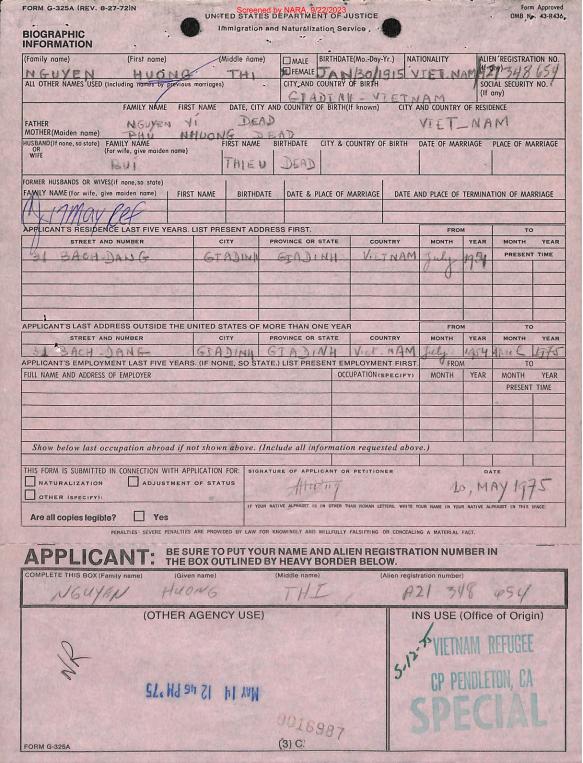 FORM G-325A (REV. 8-27-72)N
Screened by NARA, 9/22/2023
Form Approved
UNITED STATES DEPARTMENT OF JUSTICE
OMB No. 43-R436
Immigration and Naturalization Service
BIOGRAPHIC
INFORMATION
(Family name) (First name) (Middle name) MALE FEMALE BIRTHDATE(Mo.-Day-Yr.) NATIONALITY ALIEN REGISTRATION NO.
NGUYEN HUONG THI JAN/30/1915 VIET.NAM A21 348 654
ALL OTHER NAMES USED (Including names by previous marriages) CITY AND COUNTRY OF BIRTH SOCIAL SECURITY NO. (If any)
GIADINH - VIETNAM
FAMILY NAME FIRST NAME DATE, CITY AND COUNTRY OF BIRTH(If known) CITY AND COUNTRY OF RESIDENCE
FATHER NGUYEN VI DEAD VIET_NAM
MOTHER(Maiden name) PHU NHUONG DEAD
HUSBAND(If none, so state) OR WIFE FAMILY NAME (For wife, give maiden name) FIRST NAME BIRTHDATE CITY & COUNTRY OF BIRTH DATE OF MARRIAGE PLACE OF MARRIAGE
BUI THIEU DEAD
FORMER HUSBANDS OR WIVES(If none, so state)
FAMILY NAME (For wife, give maiden name) FIRST NAME BIRTHDATE DATE & PLACE OF MARRIAGE DATE AND PLACE OF TERMINATION OF MARRIAGE
17 May Ref
APPLICANT'S RESIDENCE LAST FIVE YEARS. LIST PRESENT ADDRESS FIRST. FROM TO
STREET AND NUMBER CITY PROVINCE OR STATE COUNTRY MONTH YEAR MONTH YEAR
PRESENT TIME
31 BACH-DANG GIADINH GIADINH VIETNAM July 1954
APPLICANT'S LAST ADDRESS OUTSIDE THE UNITED STATES OF MORE THAN ONE YEAR FROM TO
STREET AND NUMBER CITY PROVINCE OR STATE COUNTRY MONTH YEAR MONTH YEAR
31 BACH-DANG GIADINH GIADINH Viet.NAM July 1954 April 1975
APPLICANT'S EMPLOYMENT LAST FIVE YEARS. (IF NONE, SO STATE.) LIST PRESENT EMPLOYMENT FIRST. FROM TO
FULL NAME AND ADDRESS OF EMPLOYER OCCUPATION (SPECIFY) MONTH YEAR MONTH YEAR
PRESENT TIME
Show below last occupation abroad if not shown above. (Include all information requested above.)
THIS FORM IS SUBMITTED IN CONNECTION WITH APPLICATION FOR: SIGNATURE OF APPLICANT OR PETITIONER DATE
NATURALIZATION ADJUSTMENT OF STATUS
OTHER (SPECIFY): Huong 10, MAY 1975
Are all copies legible? Yes
IF YOUR NATIVE ALPHABET IS IN OTHER THAN ROMAN LETTERS, WRITE YOUR NAME IN YOUR NATIVE ALPHABET IN THIS SPACE:
PENALTIES: SEVERE PENALTIES ARE PROVIDED BY LAW FOR KNOWINGLY AND WILLFULLY FALSIFYING OR CONCEALING A MATERIAL FACT.
APPLICANT: BE SURE TO PUT YOUR NAME AND ALIEN REGISTRATION NUMBER IN
THE BOX OUTLINED BY HEAVY BORDER BELOW.
COMPLETE THIS BOX (Family name) (Given name) (Middle name) (Alien registration number)
NGUYEN HUONG THI A21 348 654
(OTHER AGENCY USE) INS USE (Office of Origin)
NR
5-12-75
VIETNAM REFUGEE
CP PENDLETON, CA
SPECIAL
MAY 14 12 46 PM '75
0016987
FORM G-325A (3) C.